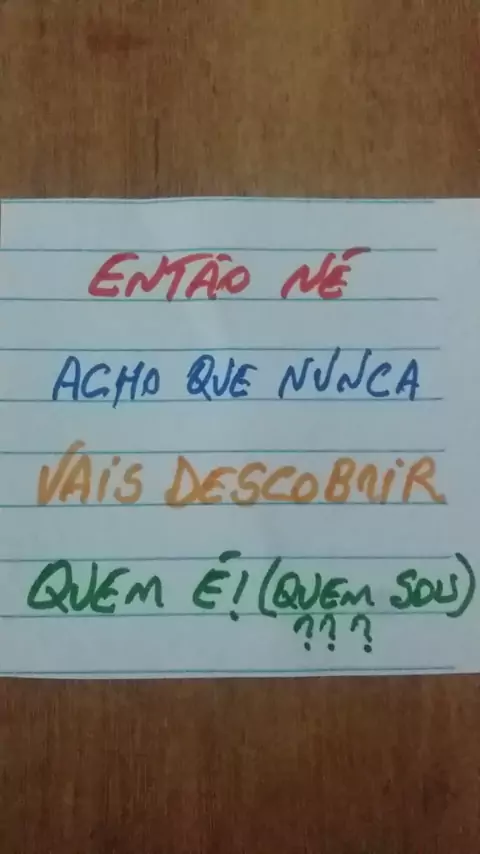 ENTÃO NÉ
ACHO QUE NUNCA
VAIS DESCOBRIR
QUEM É! (QUEM SOU)
???